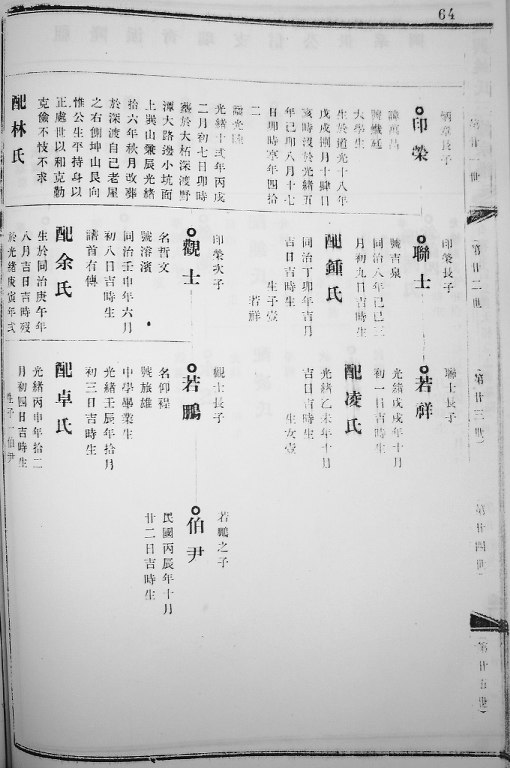 64
第廿一世
炳章長子
印榮
諱寓昌
大學生
生於道光十八年
戊戌四月十肆日
亥時沒於光緒五
年己卯八月十七
日卯時享年四拾
二
繼光陸
光緒十弍年丙戌
二月初七日卯時
葬於大柘深渡野
潭大路邊小坑面
上巽山兼辰光緒
拾六年秋月改葬
於深渡自己老屋
之右側坤山艮向
惟公生平持身以
正處世以和克勤
克儉不忮不求
配林氏
第廿二世
印榮長子
聯士
號吉泉
同治八年己巳三
月初九日吉時生
配鍾氏
同治丁卯年吉月
吉日吉時生
生子壹
若祥
印榮次子
觀士
名哲文
號溶濱
同治壬申年六月
初八日吉時生
諸首有傳
配余氏
生於同治庚午年
八月吉日吉時歿
於光緒庚寅年弍
第廿三世
聯士長子
若祥
光緒戊戌年十月
初一日吉時生
配凌氏
光緒乙未年十月
吉日吉時生
生女壹
觀士長子
若鵬
名仰程
號旅雄
中學畢業生
光緒壬辰年拾月
初三日吉時生
配卓氏
光緒丙申年拾二
月初四日吉時生
生子一伯尹
第廿四世
若鵬之子
伯尹
民國丙辰年十月
廿二日吉時生
第廿五世